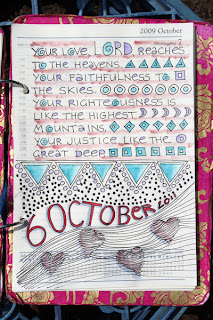 2009 October
YOUR LOVE, LORD, REACHES
TO THE HEAVENS,
YOUR FAITHFULNESS TO
THE SKIES.
YOUR RIGHTEOUSNESS IS
LIKE THE HIGHEST
MOUNTAINS,
YOUR JUSTICE LIKE THE
GREAT DEEP.
6 OCTOBER